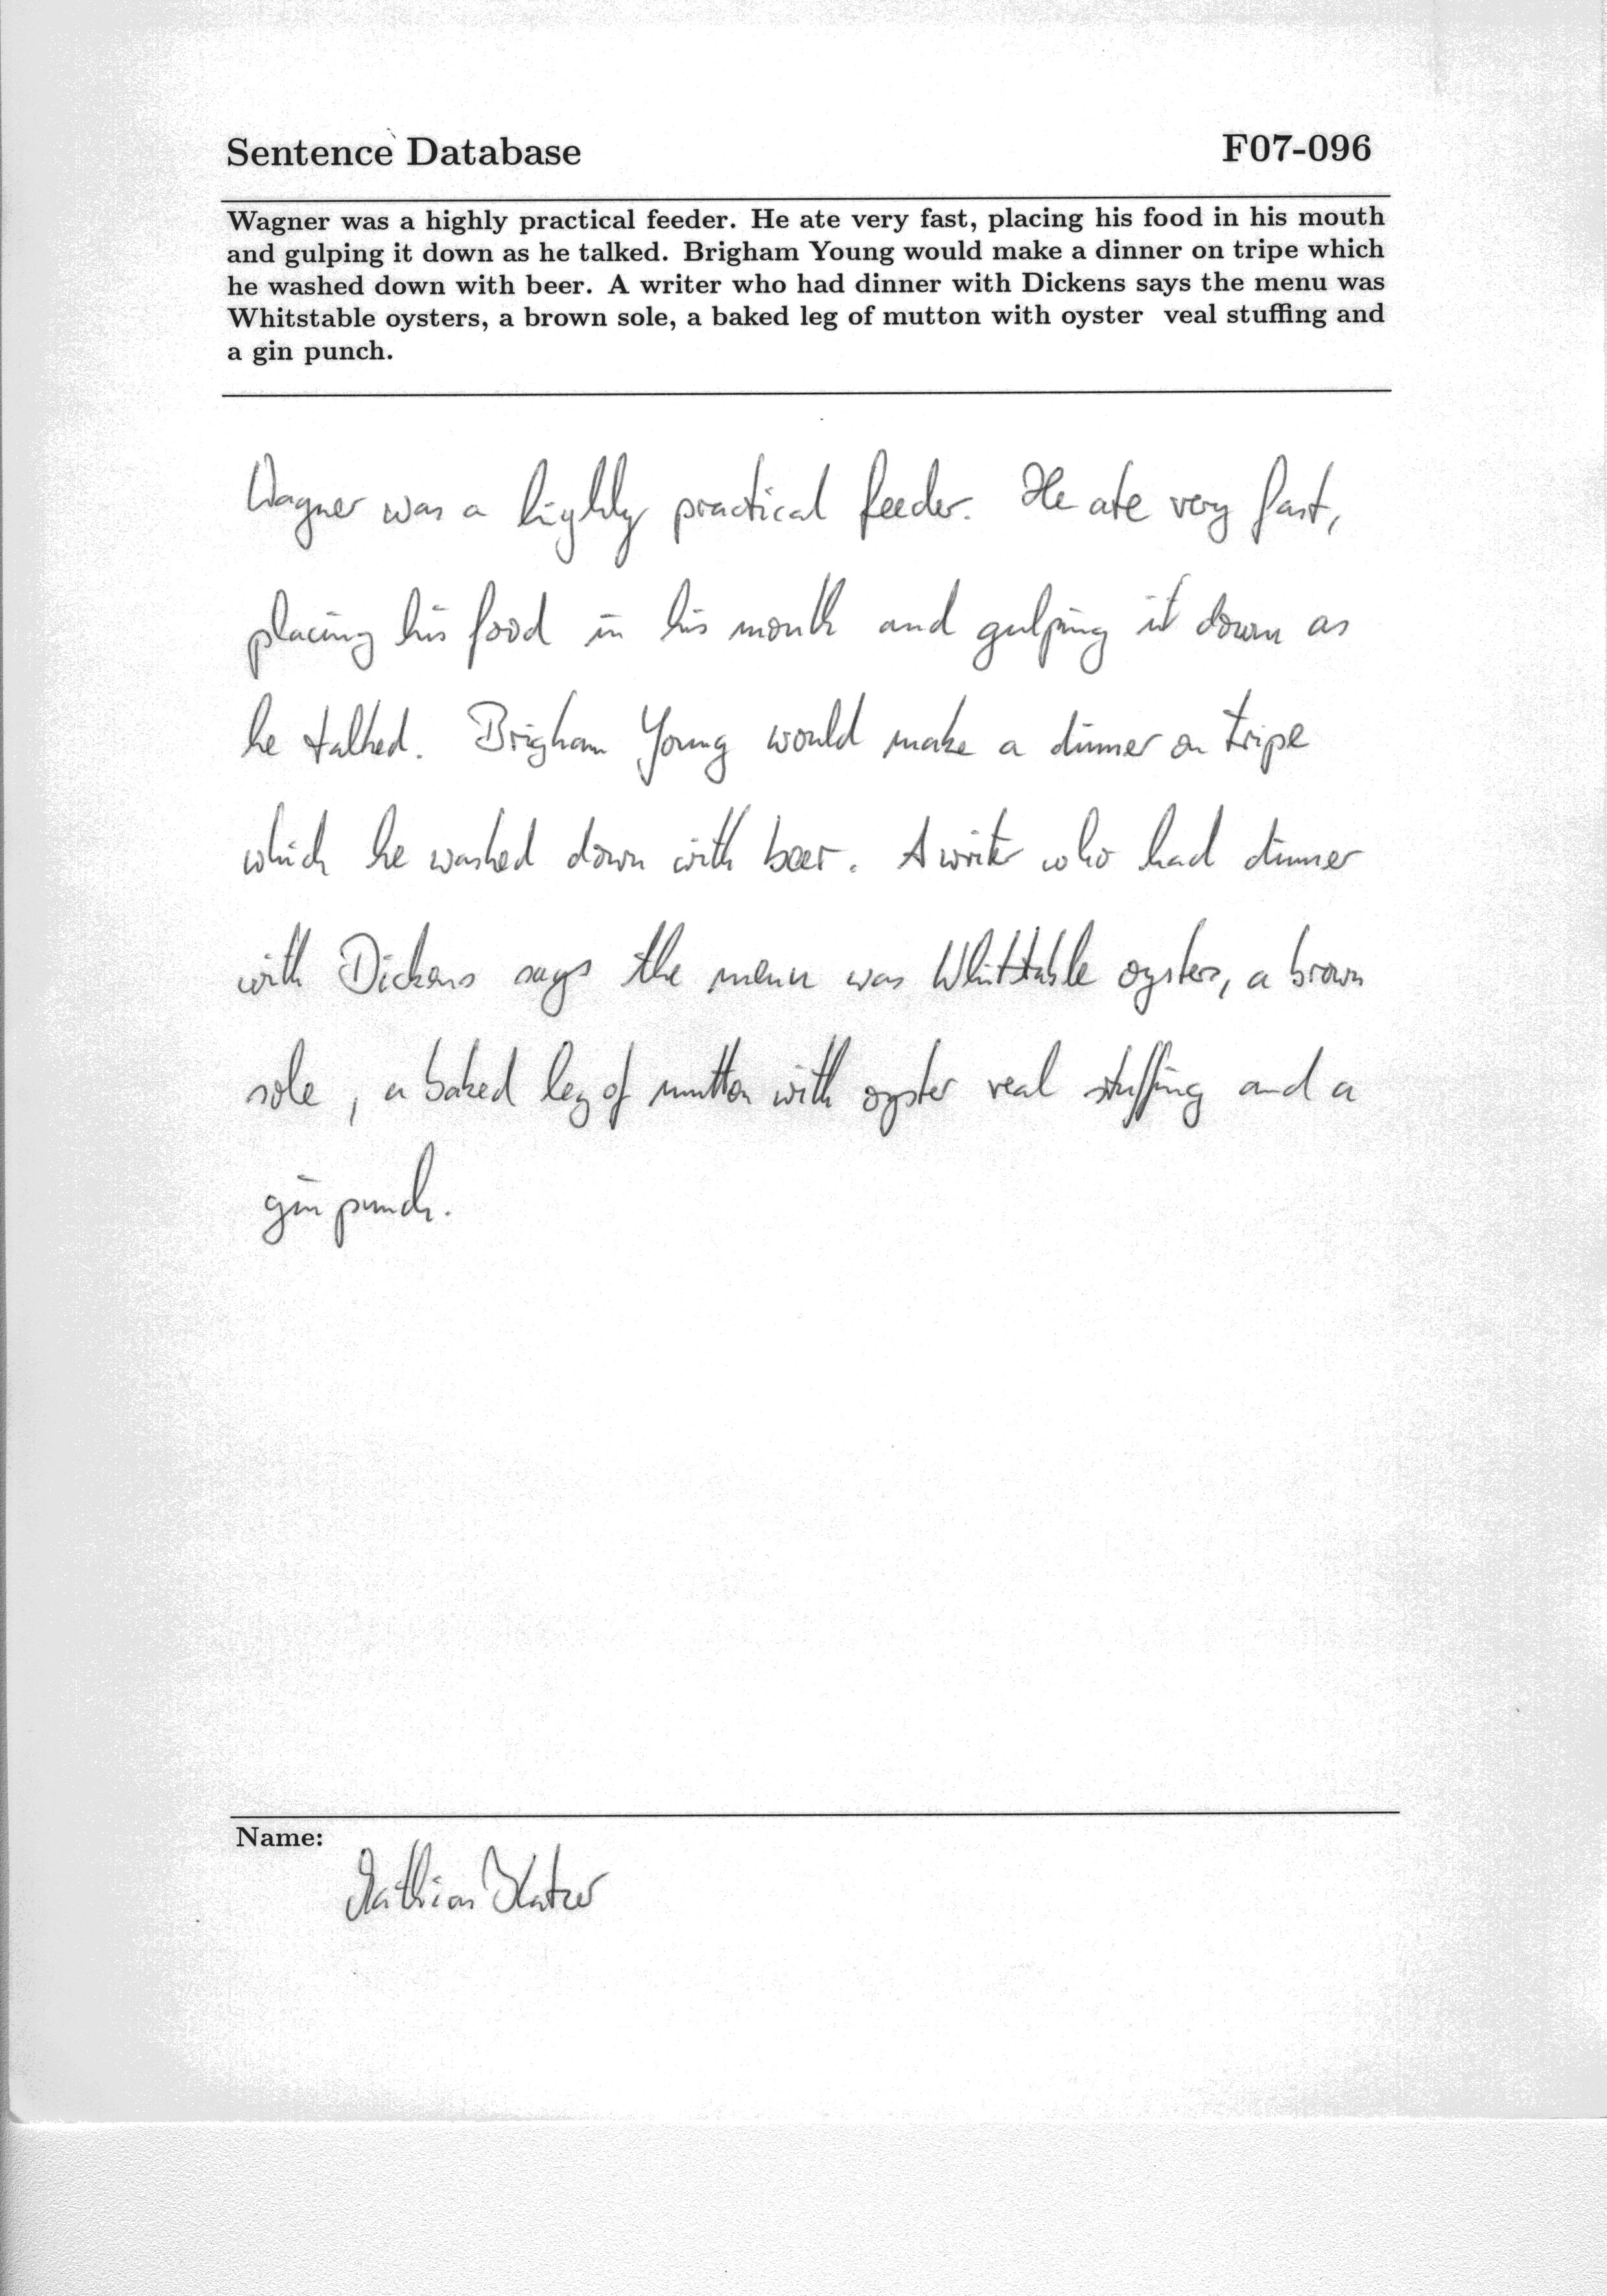 Sentence Database F07-096
Wagner was a highly practical feeder. He ate very fast, placing his food in his mouth
and gulping it down as he talked. Brigham Young would make a dinner on tripe which
he washed down with beer. A writer who had dinner with Dickens says the menu was
Whitstable oysters, a brown sole, a baked leg of mutton with oyster veal stuffing and
a gin punch.
Wagner was a highly practical feeder. He ate very fast,
placing his food in his mouth and gulping it down as
he talked. Brigham Young would make a dinner on tripe
which he washed down with beer. A writer who had dinner
with Dickens says the menu was Whitstable oysters, a brown
sole, a baked leg of mutton with oyster veal stuffing and a
gin punch.
Name:
Mathias